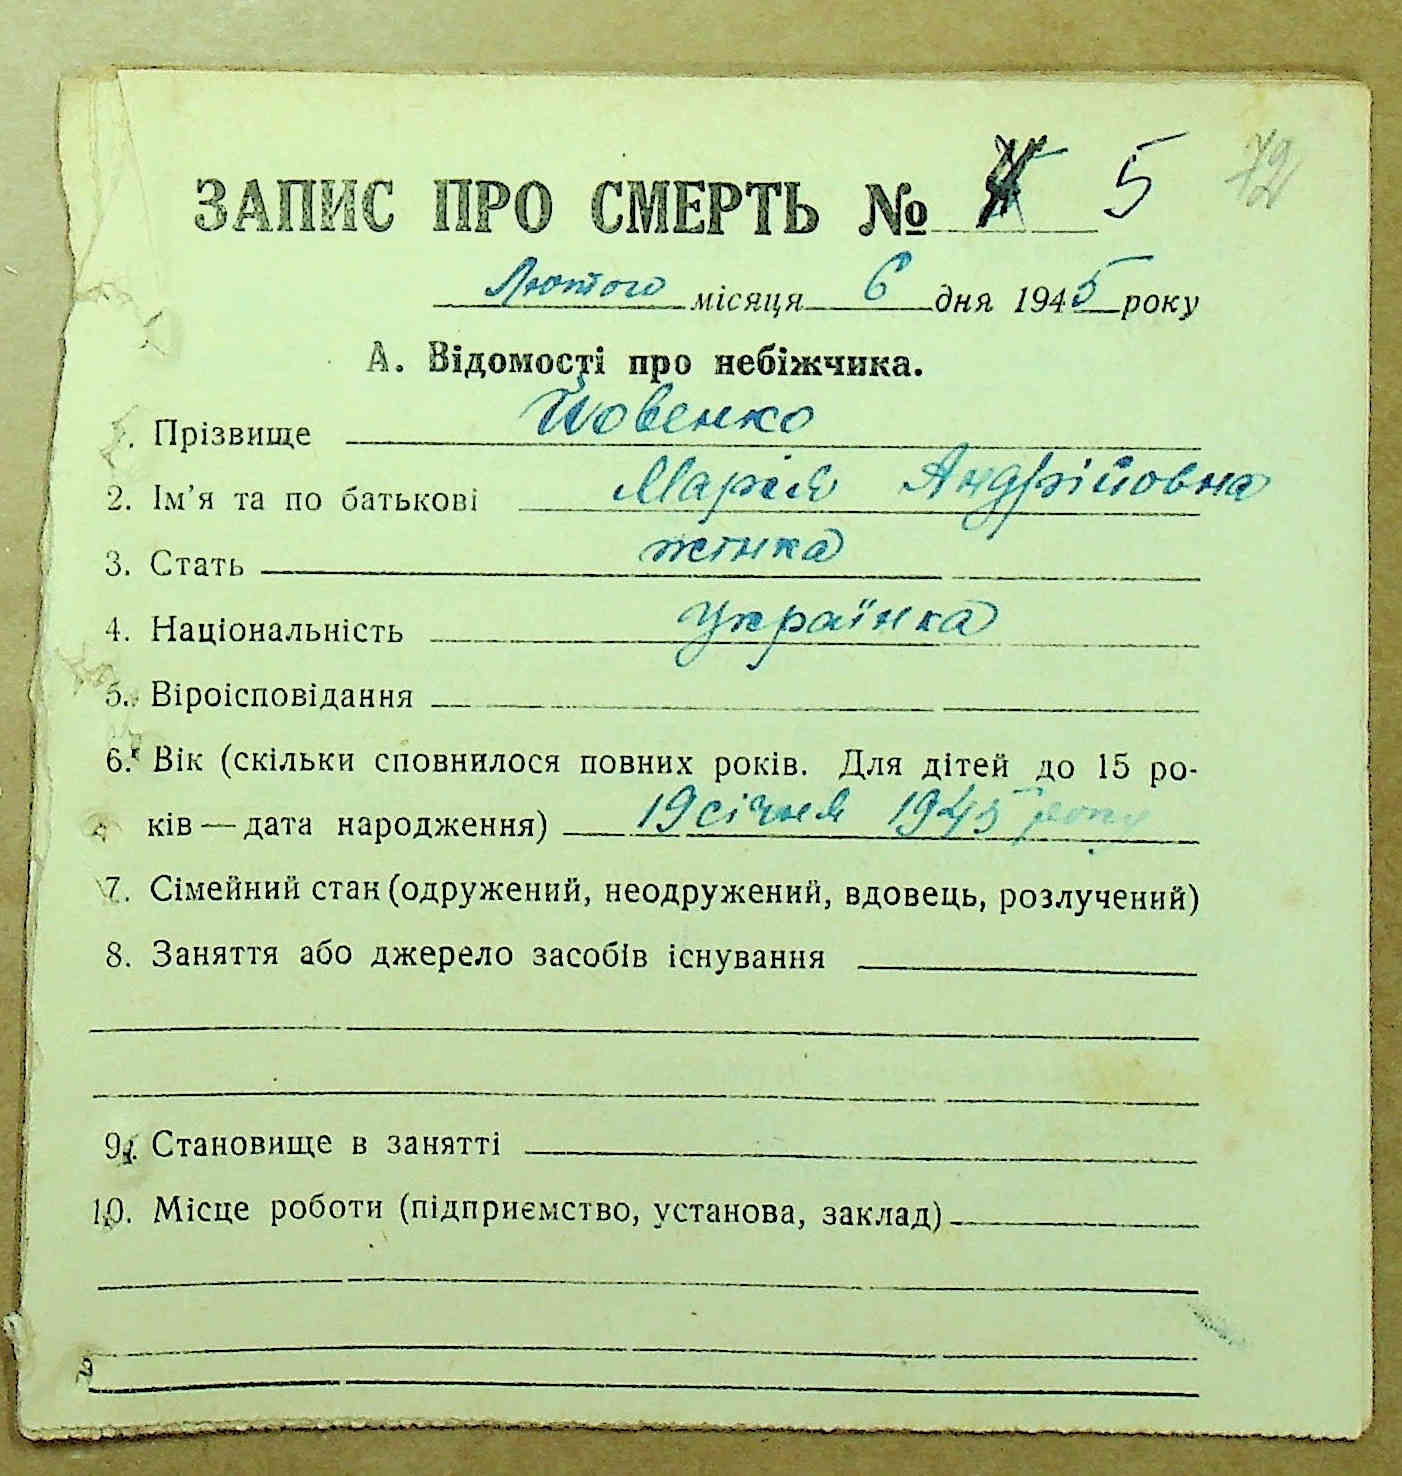 ЗАПИС ПРО СМЕРТЬ № 5 72
Лютого місяця 6 дня 1945 року
А. Відомості про небіжчика.
1. Прізвище Йовенко
2. Ім'я та по батькові Марія Андрійовна
3. Стать жінка
4. Національність Українка
5. Віроісповідання
6. Вік (скільки сповнилося повних років. Для дітей до 15 ро-
ків — дата народження) 19 січня 1945 року
7. Сімейний стан (одружений, неодружений, вдовець, розлучений)
8. Заняття або джерело засобів існування
9. Становище в занятті
10. Місце роботи (підприємство, установа, заклад)